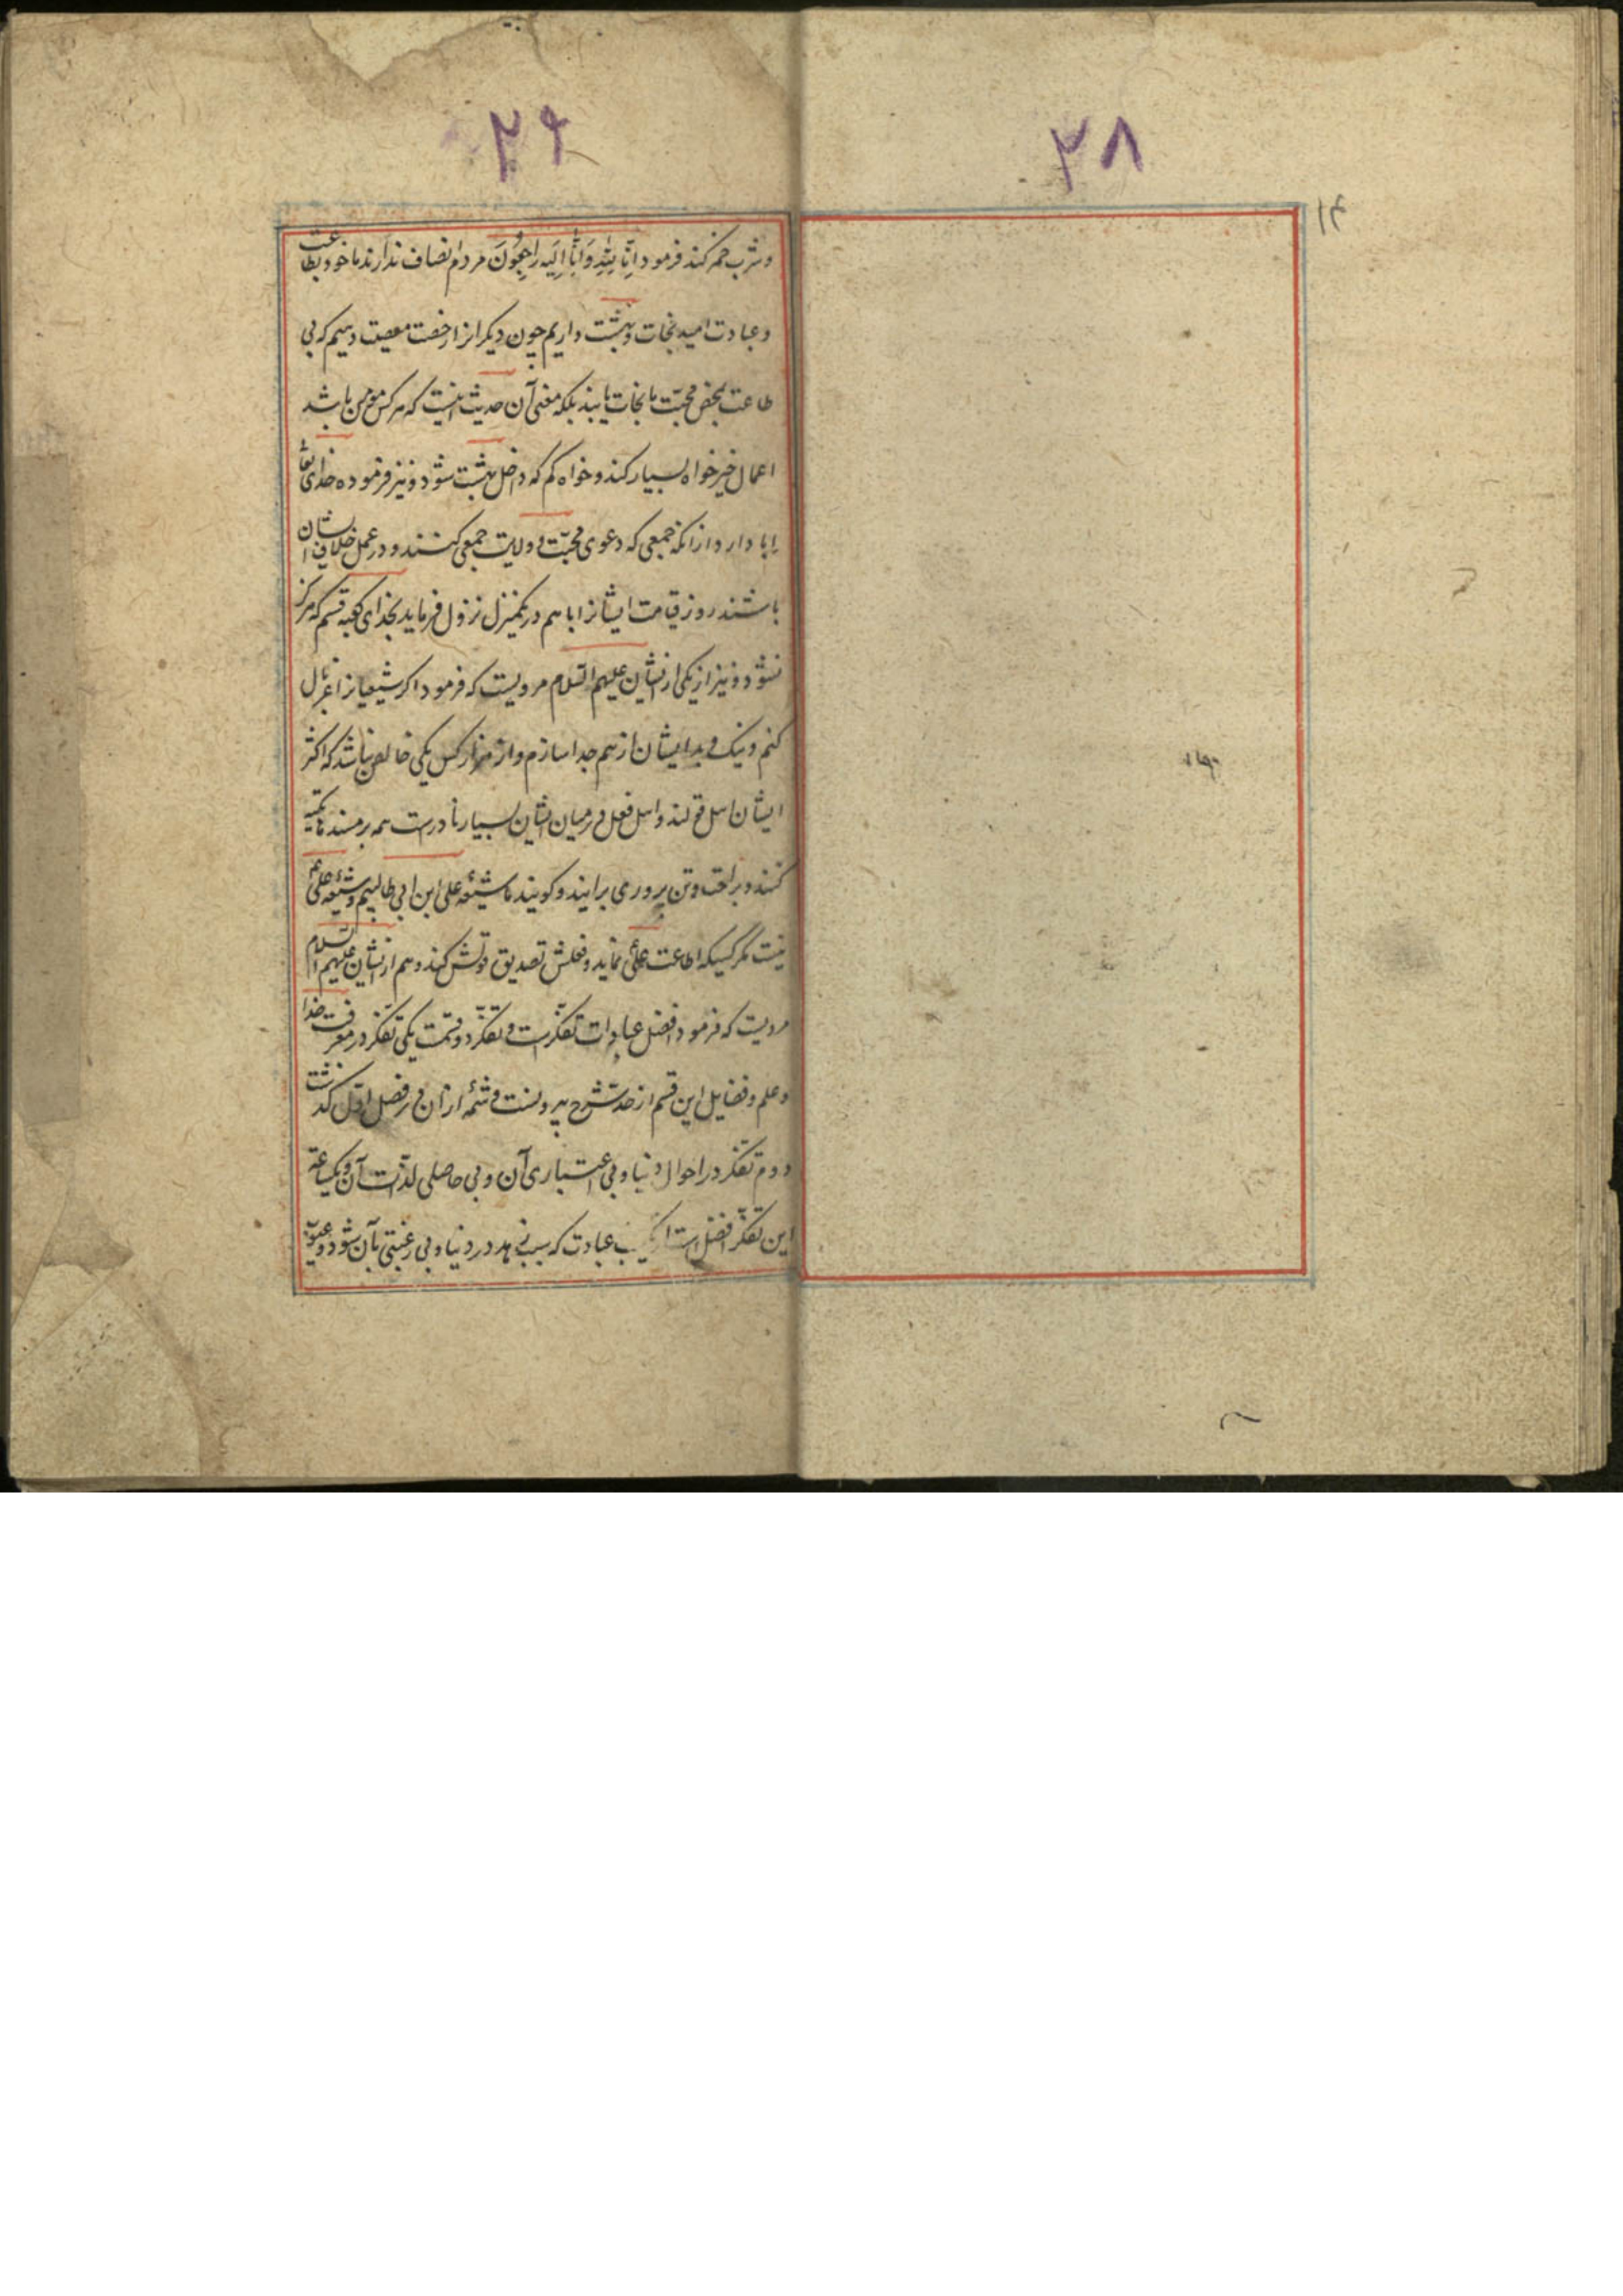 ۳۸
۳۹
وشرب خمر کند فرمود اِنّا لِلّٰهِ وَاِنّا اِلَیه راجِعُونَ مردم انصاف ندارند ما خود بطاعت
وعبادت امید نجات و بهشت داریم چون دیکرانرا رخصت معصیت دهیم که بی
طاعت بمحض محبّت ما نجات یابند بلکه معنی آن حدیث اینست که هرکس مؤمن باشد
اعمال خیر خواه بسیار کند و خواه کم که داخل بهشت شود و نیز فرموده خدای تعا
ابا دارد ازانکه جمعی که دعوی محبّت و ولایت جمعی کنند و در عمل خلاف ایشان
باشند روز قیامت ایشانرا باهم در یکمنزل نزول فرماید بخدای کعبه قسم که هرکز
نشود و نیز از یکی ازیشان علیهم السّلام مرویست که فرمود اکر شیعیانرا غربال
کنم ونیک و بد ایشان از هم جدا سازم و از هزار کس یکی خالص نباشد که اکثر
ایشان اهل قولند و اهل فعل در میان ایشان بسیار نادرست همه بر مسندها تکیه
کنند و براحت وتن پروری برایند و کویند ما شیعهٔ علی ابن ابی طالبیم و شیعهٔ علی
نیست مکر کسیکه اطاعت علی نماید و فعلش تصدیق قولش کند و هم ازیشان علیهم السلام
مرویست که فرمود افضل عبادات تفکّرست و تفکّر دو قسمت یکی تفکّر در معرفت خدا
وعلم و فضایل این قسم از حد شرح بیرونست و شمّهٔ ازان در فصل اول کذشت
دوم تفکر در احوال دنیا و بی اعتباری آن و بی حاصلی لذّات آن و یکساعته
این تفکّر افضل است از عبادت که سبب زهد در دنیا و بی رغبتی بآن شود و